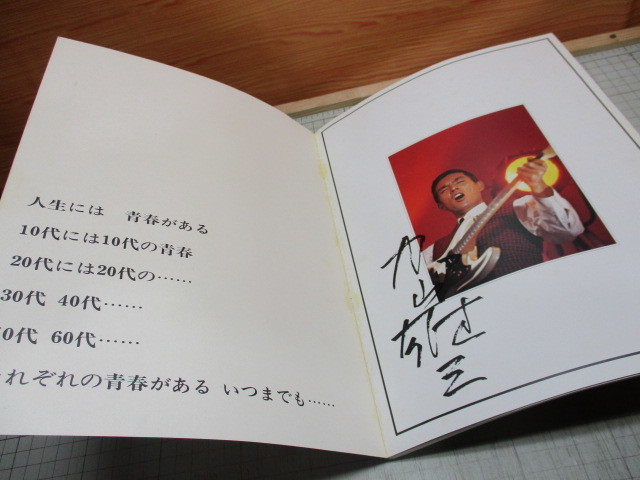 人生には 青春がある
10代には10代の青春
20代には20代の……
30代 40代……
0代 60代……
れぞれの青春がある いつまでも……
加山雄三